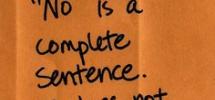 "No" is a
complete
sentence.
not